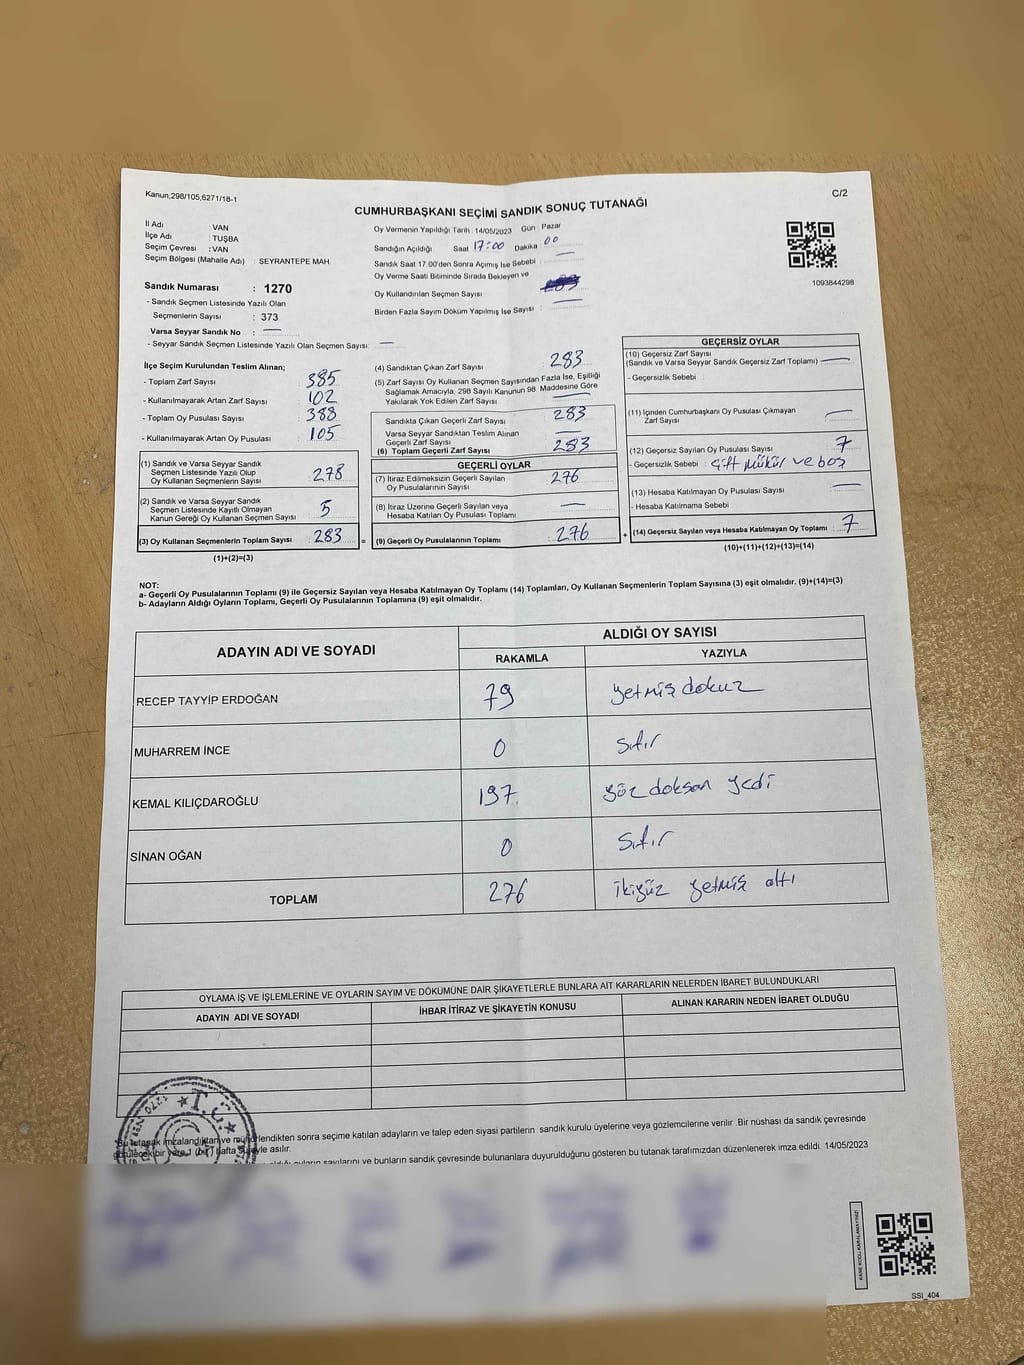 Kanun,298/105,6271/18-1
C/2
CUMHURBAŞKANI SEÇİMİ SANDIK SONUÇ TUTANAĞI
İl Adı : VAN
İlçe Adı : TUŞBA
Seçim Çevresi : VAN
Seçim Bölgesi (Mahalle Adı) : SEYRANTEPE MAH.
Sandık Numarası : 1270
- Sandık Seçmen Listesinde Yazılı Olan
Seçmenlerin Sayısı : 373
Varsa Seyyar Sandık No : —
- Seyyar Sandık Seçmen Listesinde Yazılı Olan Seçmen Sayısı: —
Oy Vermenin Yapıldığı Tarih : 14/05/2023 Gün Pazar
Sandığın Açıldığı Saat 17:00 Dakika : 00
Sandık Saat 17.00'den Sonra Açımış İse Sebebi : —
Oy Verme Saati Bitiminde Sırada Bekleyen ve
Oy Kullandırılan Seçmen Sayısı
Birden Fazla Sayım Döküm Yapılmış İse Sayısı : —
1093844298
İlçe Seçim Kurulundan Teslim Alınan;
- Toplam Zarf Sayısı : 385
- Kullanılmayarak Artan Zarf Sayısı : 102
- Toplam Oy Pusulası Sayısı : 388
- Kullanılmayarak Artan Oy Pusulası : 105
(1) Sandık ve Varsa Seyyar Sandık
Seçmen Listesinde Yazılı Olup
Oy Kullanan Seçmenlerin Sayısı : 278
(2) Sandık ve Varsa Seyyar Sandık
Seçmen Listesinde Kayıtlı Olmayan
Kanun Gereği Oy Kullanan Seçmen Sayısı : 5
(3) Oy Kullanan Seçmenlerin Toplam Sayısı : 283
(1)+(2)=(3)
=
(4) Sandıktan Çıkan Zarf Sayısı : 283
(5) Zarf Sayısı Oy Kullanan Seçmen Sayısından Fazla İse, Eşitliği
Sağlamak Amacıyla, 298 Sayılı Kanunun 98. Maddesine Göre
Yakılarak Yok Edilen Zarf Sayısı : —
Sandıkta Çıkan Geçerli Zarf Sayısı : 283
Varsa Seyyar Sandıktan Teslim Alınan
Geçerli Zarf Sayısı : —
(6) Toplam Geçerli Zarf Sayısı : 283
GEÇERLİ OYLAR
(7) İtiraz Edilmeksizin Geçerli Sayılan
Oy Pusulalarının Sayısı : 276
(8) İtiraz Üzerine Geçerli Sayılan veya
Hesaba Katılan Oy Pusulası Toplamı : —
(9) Geçerli Oy Pusulalarının Toplamı : 276
+
GEÇERSİZ OYLAR
(10) Geçersiz Zarf Sayısı
(Sandık ve Varsa Seyyar Sandık Geçersiz Zarf Toplamı) : —
- Geçersizlik Sebebi :
(11) İçinden Cumhurbaşkanı Oy Pusulası Çıkmayan
Zarf Sayısı : —
(12) Geçersiz Sayılan Oy Pusulası Sayısı : 7
- Geçersizlik Sebebi : çift mükür ve boş
(13) Hesaba Katılmayan Oy Pusulası Sayısı : —
- Hesaba Katılmama Sebebi
(14) Geçersiz Sayılan veya Hesaba Katılmayan Oy Toplamı : 7
(10)+(11)+(12)+(13)=(14)
NOT:
a- Geçerli Oy Pusulalarının Toplamı (9) ile Geçersiz Sayılan veya Hesaba Katılmayan Oy Toplamı (14) Toplamları, Oy Kullanan Seçmenlerin Toplam Sayısına (3) eşit olmalıdır. (9)+(14)=(3)
b- Adayların Aldığı Oyların Toplamı, Geçerli Oy Pusulalarının Toplamına (9) eşit olmalıdır.
ADAYIN ADI VE SOYADI
ALDIĞI OY SAYISI
RAKAMLA YAZIYLA
RECEP TAYYİP ERDOĞAN 79 yetmiş dokuz
MUHARREM İNCE 0 sıfır
KEMAL KILIÇDAROĞLU 197. yüz doksan yedi
SİNAN OĞAN 0 sıfır
TOPLAM 276 ikiyüz yetmiş altı
OYLAMA İŞ VE İŞLEMLERİNE VE OYLARIN SAYIM VE DÖKÜMÜNE DAİR ŞİKAYETLERLE BUNLARA AİT KARARLARIN NELERDEN İBARET BULUNDUKLARI
ADAYIN ADI VE SOYADI İHBAR İTİRAZ VE ŞİKAYETİN KONUSU ALINAN KARARIN NEDEN İBARET OLDUĞU
★ T.C. ★
1270
*Bu tutanak imzalandıktan ve mühürlendikten sonra seçime katılan adayların ve talep eden siyasi partilerin sandık kurulu üyelerine veya gözlemcilerine verilir. Bir nüshası da sandık çevresinde
görülecek bir yere 1 (bir) hafta süreyle asılır.
oyların sayılarını ve bunların sandık çevresinde bulunanlara duyurulduğunu gösteren bu tutanak tarafımızdan düzenlenerek imza edildi. 14/05/2023
KARE KODU KARALAMAYINIZ!
SSI_404